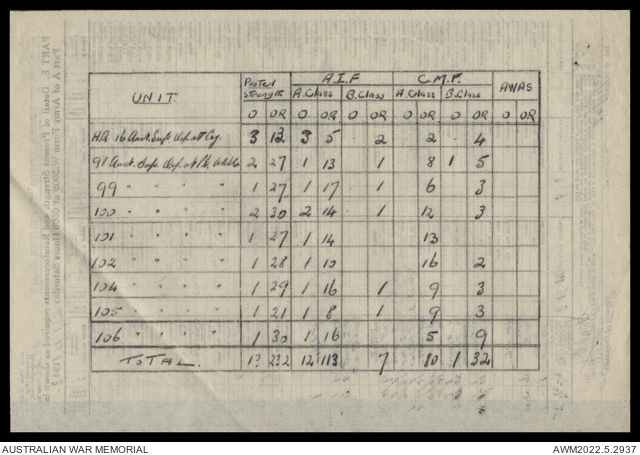 A.I.F C.M.F. AWAS
UNIT. Posted Strength A.Class B.Class A.Class B.Class
O OR O OR O OR O OR O OR O OR
HQ 16 Aust. Sup. Depot Coy. 3 13 3 5 2 2 4
98 Aust. Sup. Depot Pl. 2 27 1 13 1 8 1 5
99 " " " " 1 27 1 17 1 6 3
100 " " " " 2 30 2 14 1 12 3
101 " " " " 1 27 1 14 13
102 " " " " 1 28 1 10 16 2
104 " " " " 1 29 1 16 1 9 3
105 " " " " 1 21 1 8 1 9 3
106 " " " " 1 30 1 16 5 9
TOTAL. 13 232 12 113 7 80 1 32
AUSTRALIAN WAR MEMORIAL
AWM2022.5.2937